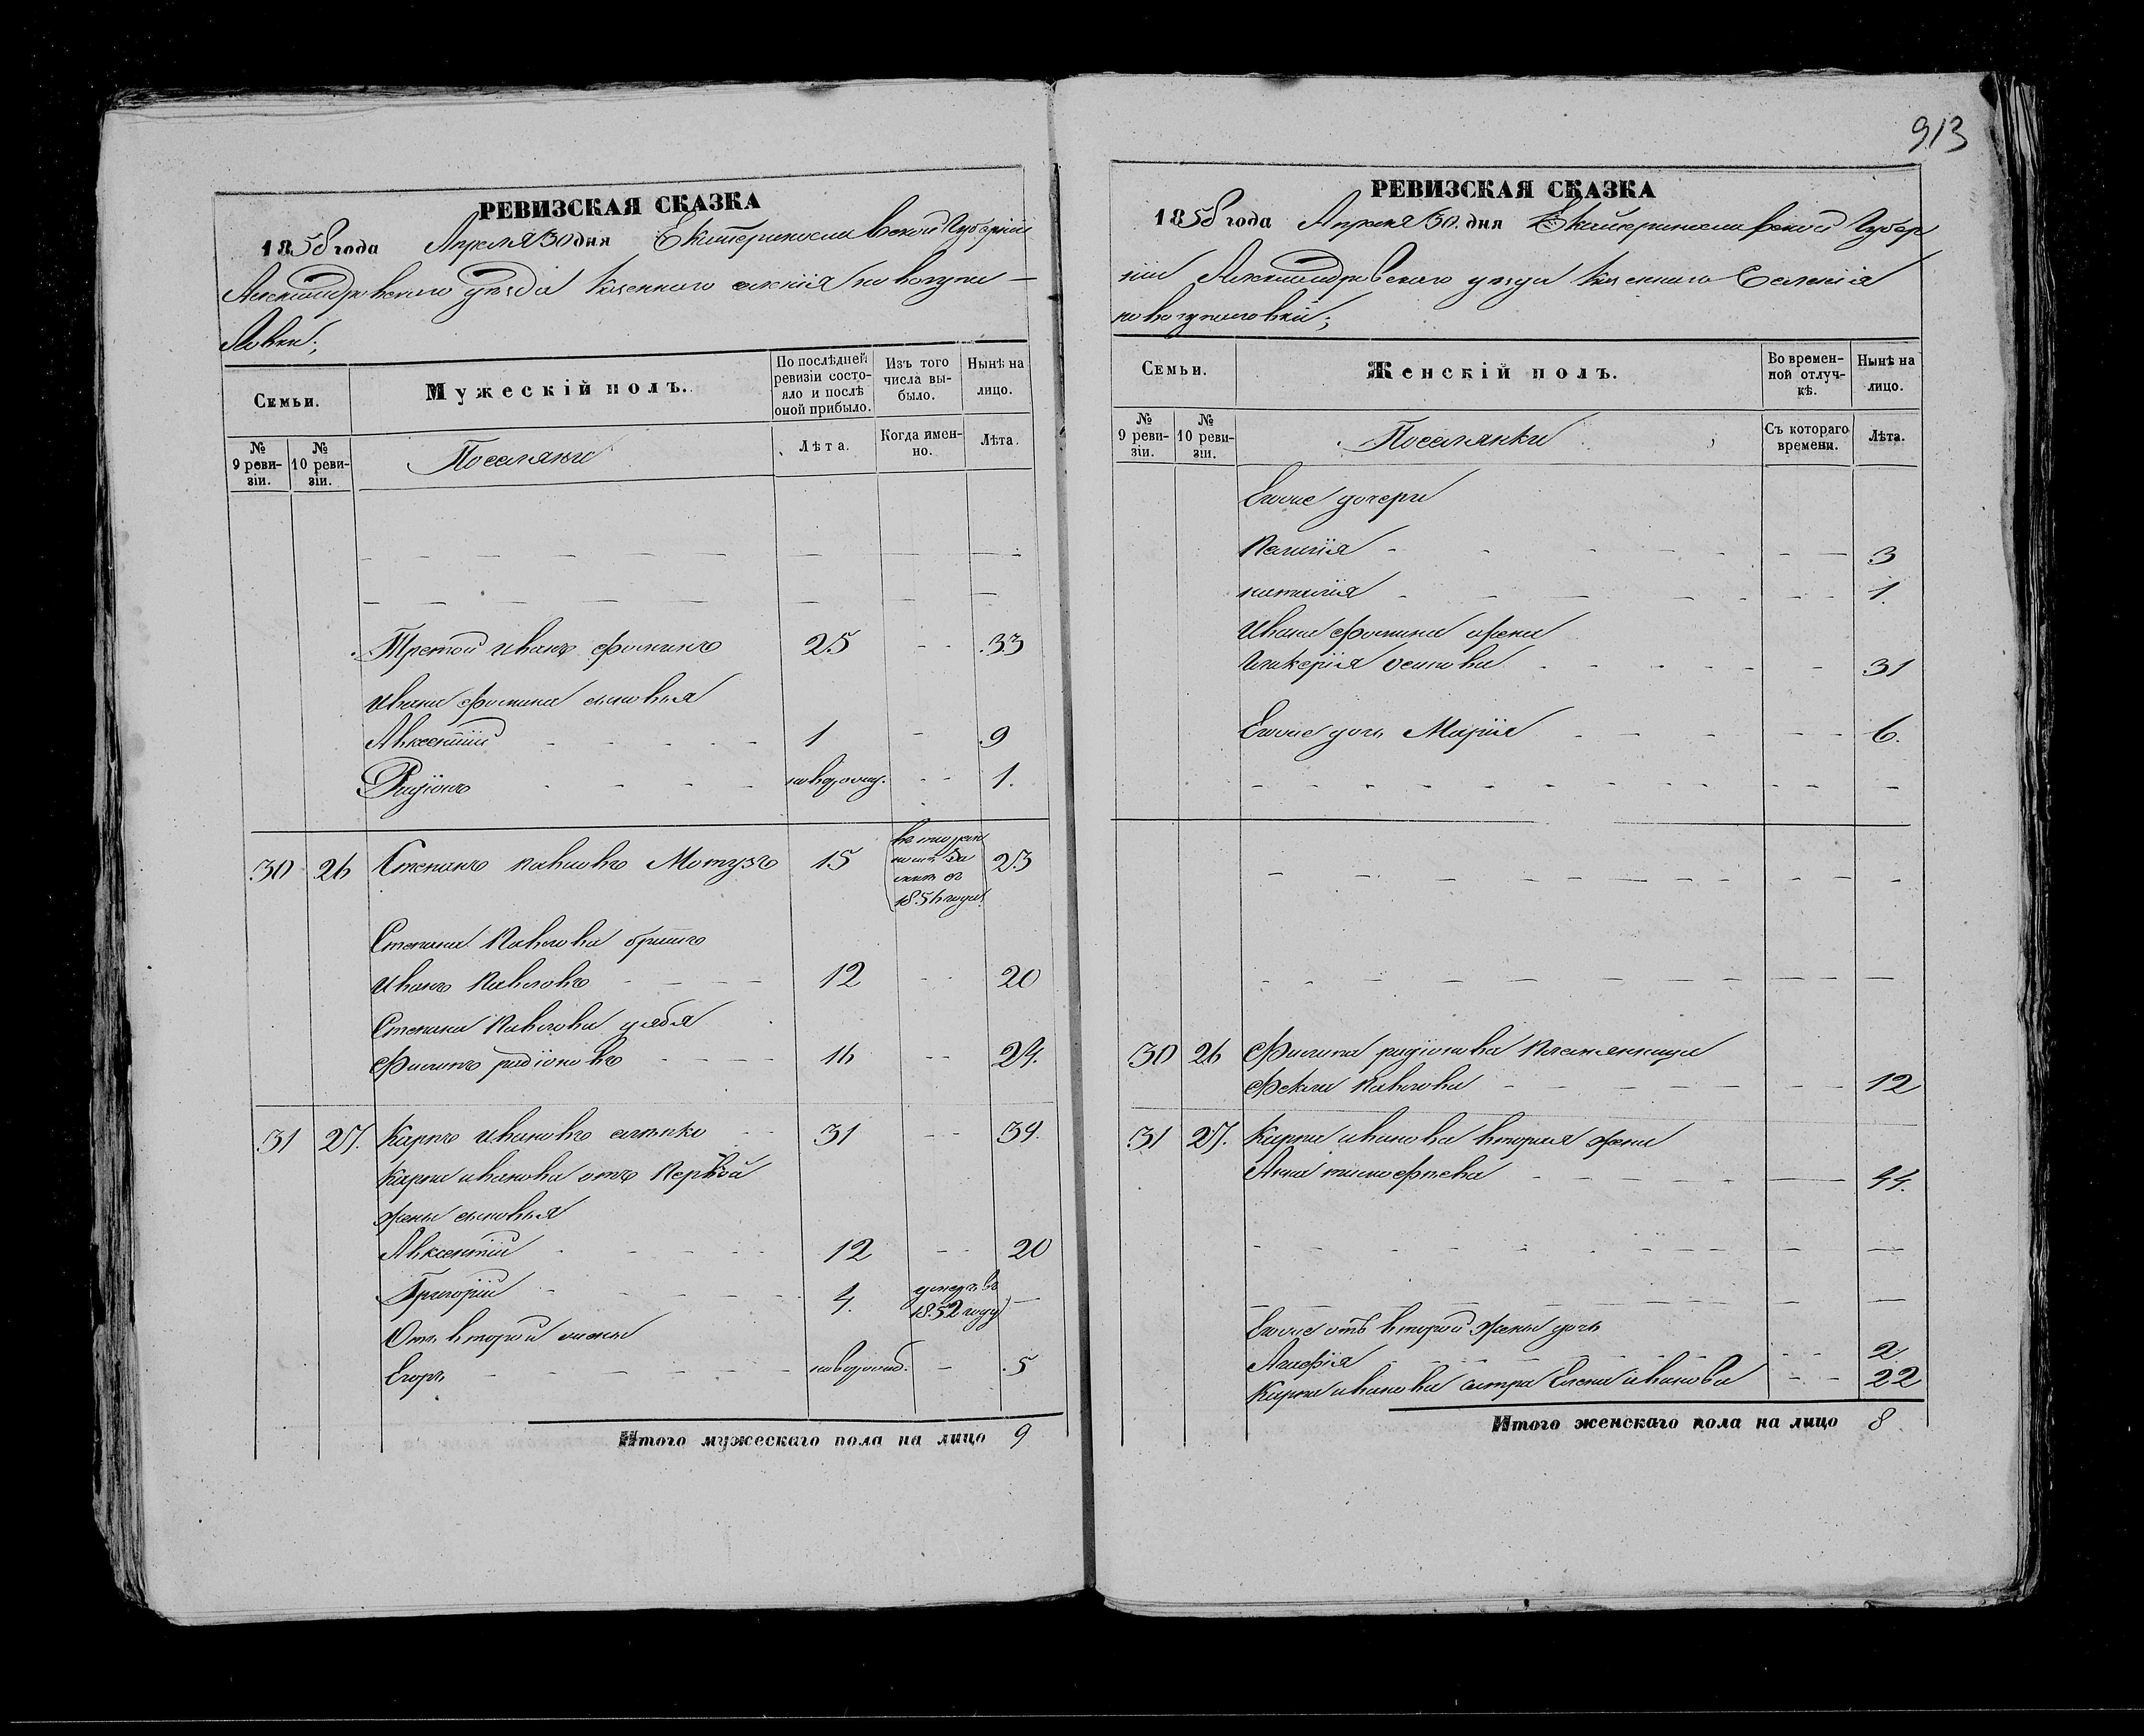 913
РЕВИЗСКАЯ СКАЗКА
1858 года Апреля 30 дня Екатеринославской Губернiи
Александровского уезда казенного селенiя новогупа-
ловки;
Семьи.
Мужескій полъ.
По послѣдней ревизіи состояло и послѣ оной прибыло.
Изъ того числа выбыло.
Нынѣ на лицо.
№ 9 ревизіи.
№ 10 ревизіи.
Поселяне
Лѣта.
Когда именно.
Лѣта.
Третой иванъ фоминъ 25 - - 33
Ивана фомина сыновья
Авксентiй 1 - 9
Радiонъ новорожд. - - 1.
30 26 Степанъ павловъ Мотузъ 15 23
1856 года
Степана Павлова братъ
Иванъ Павловъ 12 - - 20
Степана Павлова дядя
Филипъ радiоновъ 16 - - 24.
31 27. Карпъ Ивановъ 31 - - 39.
Карпа иванова отъ Первой
жены сыновья
Авксентiй 12 - - 20
Григорiй 4. умеръ въ 1852 году —
Отъ второй жены
Егоръ новорожд. - 5
Итого мужескаго пола на лицо 9
РЕВИЗСКАЯ СКАЗКА
1858 года Апреля 30. дня Екатеринославской Губер
нiи Александровского уезда казенного Селенiя
новогупаловки;
Семьи.
Женскій полъ.
Во временной отлучкѣ.
Нынѣ на лицо.
№ 9 ревизіи.
№ 10 ревизіи.
Поселянки
Съ котораго времени.
Лѣта.
Егоже дочери
Пелагiя 3
наталiя 1.
Ивана фомина жена
Гликерiя Осипова 31
Егоже дочь Марiя 6.
30 26 Филипа радiонова племянница
Фекла Павлова 12
31 27. Карпа иванова вторая жена
Анна тимофеева 44.
Егоже отъ второй жены дочь
Агафiя 2
Карпа иванова сестра Елена иванова 22
Итого женскаго пола на лицо 8